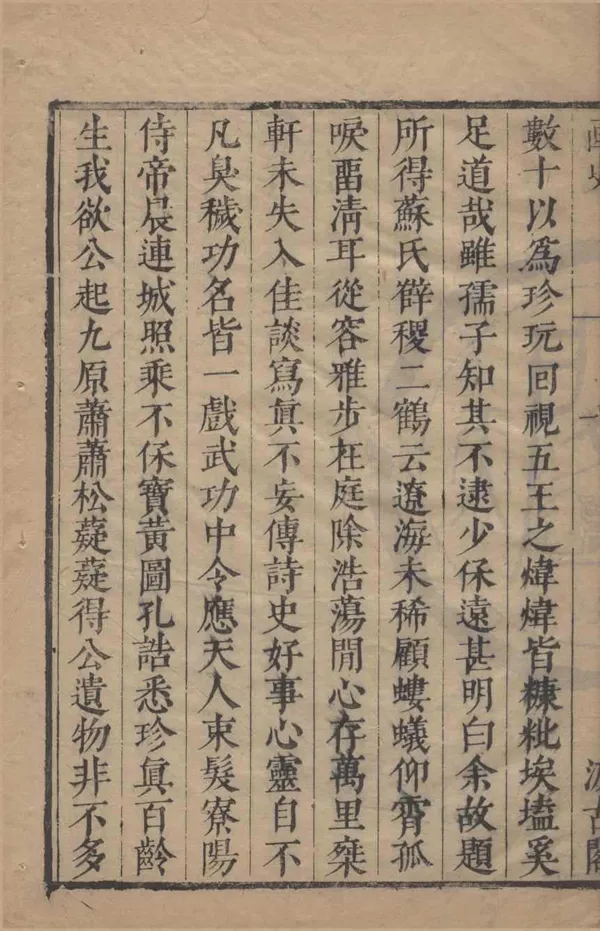 畫史
一
汲古閣
數十以爲珍玩回視五王之煒煒皆糠粃埃壒奚
足道哉雖孺子知其不逮少保遠甚明白余故題
所得蘇氏薛稷二鶴云遼海未稀顧螻蟻仰霄孤
唳留淸耳從容雅步在庭除浩蕩閒心存萬里乘
軒未失入佳談寫眞不妄傳詩史好事心靈自不
凡臭穢功名皆一戲武功中令應天人束髮寮陽
侍帝晨連城照乘不保寶黃圖孔誥悉珍眞百齡
生我欲公起九原蕭蕭松薿薿得公遺物非不多